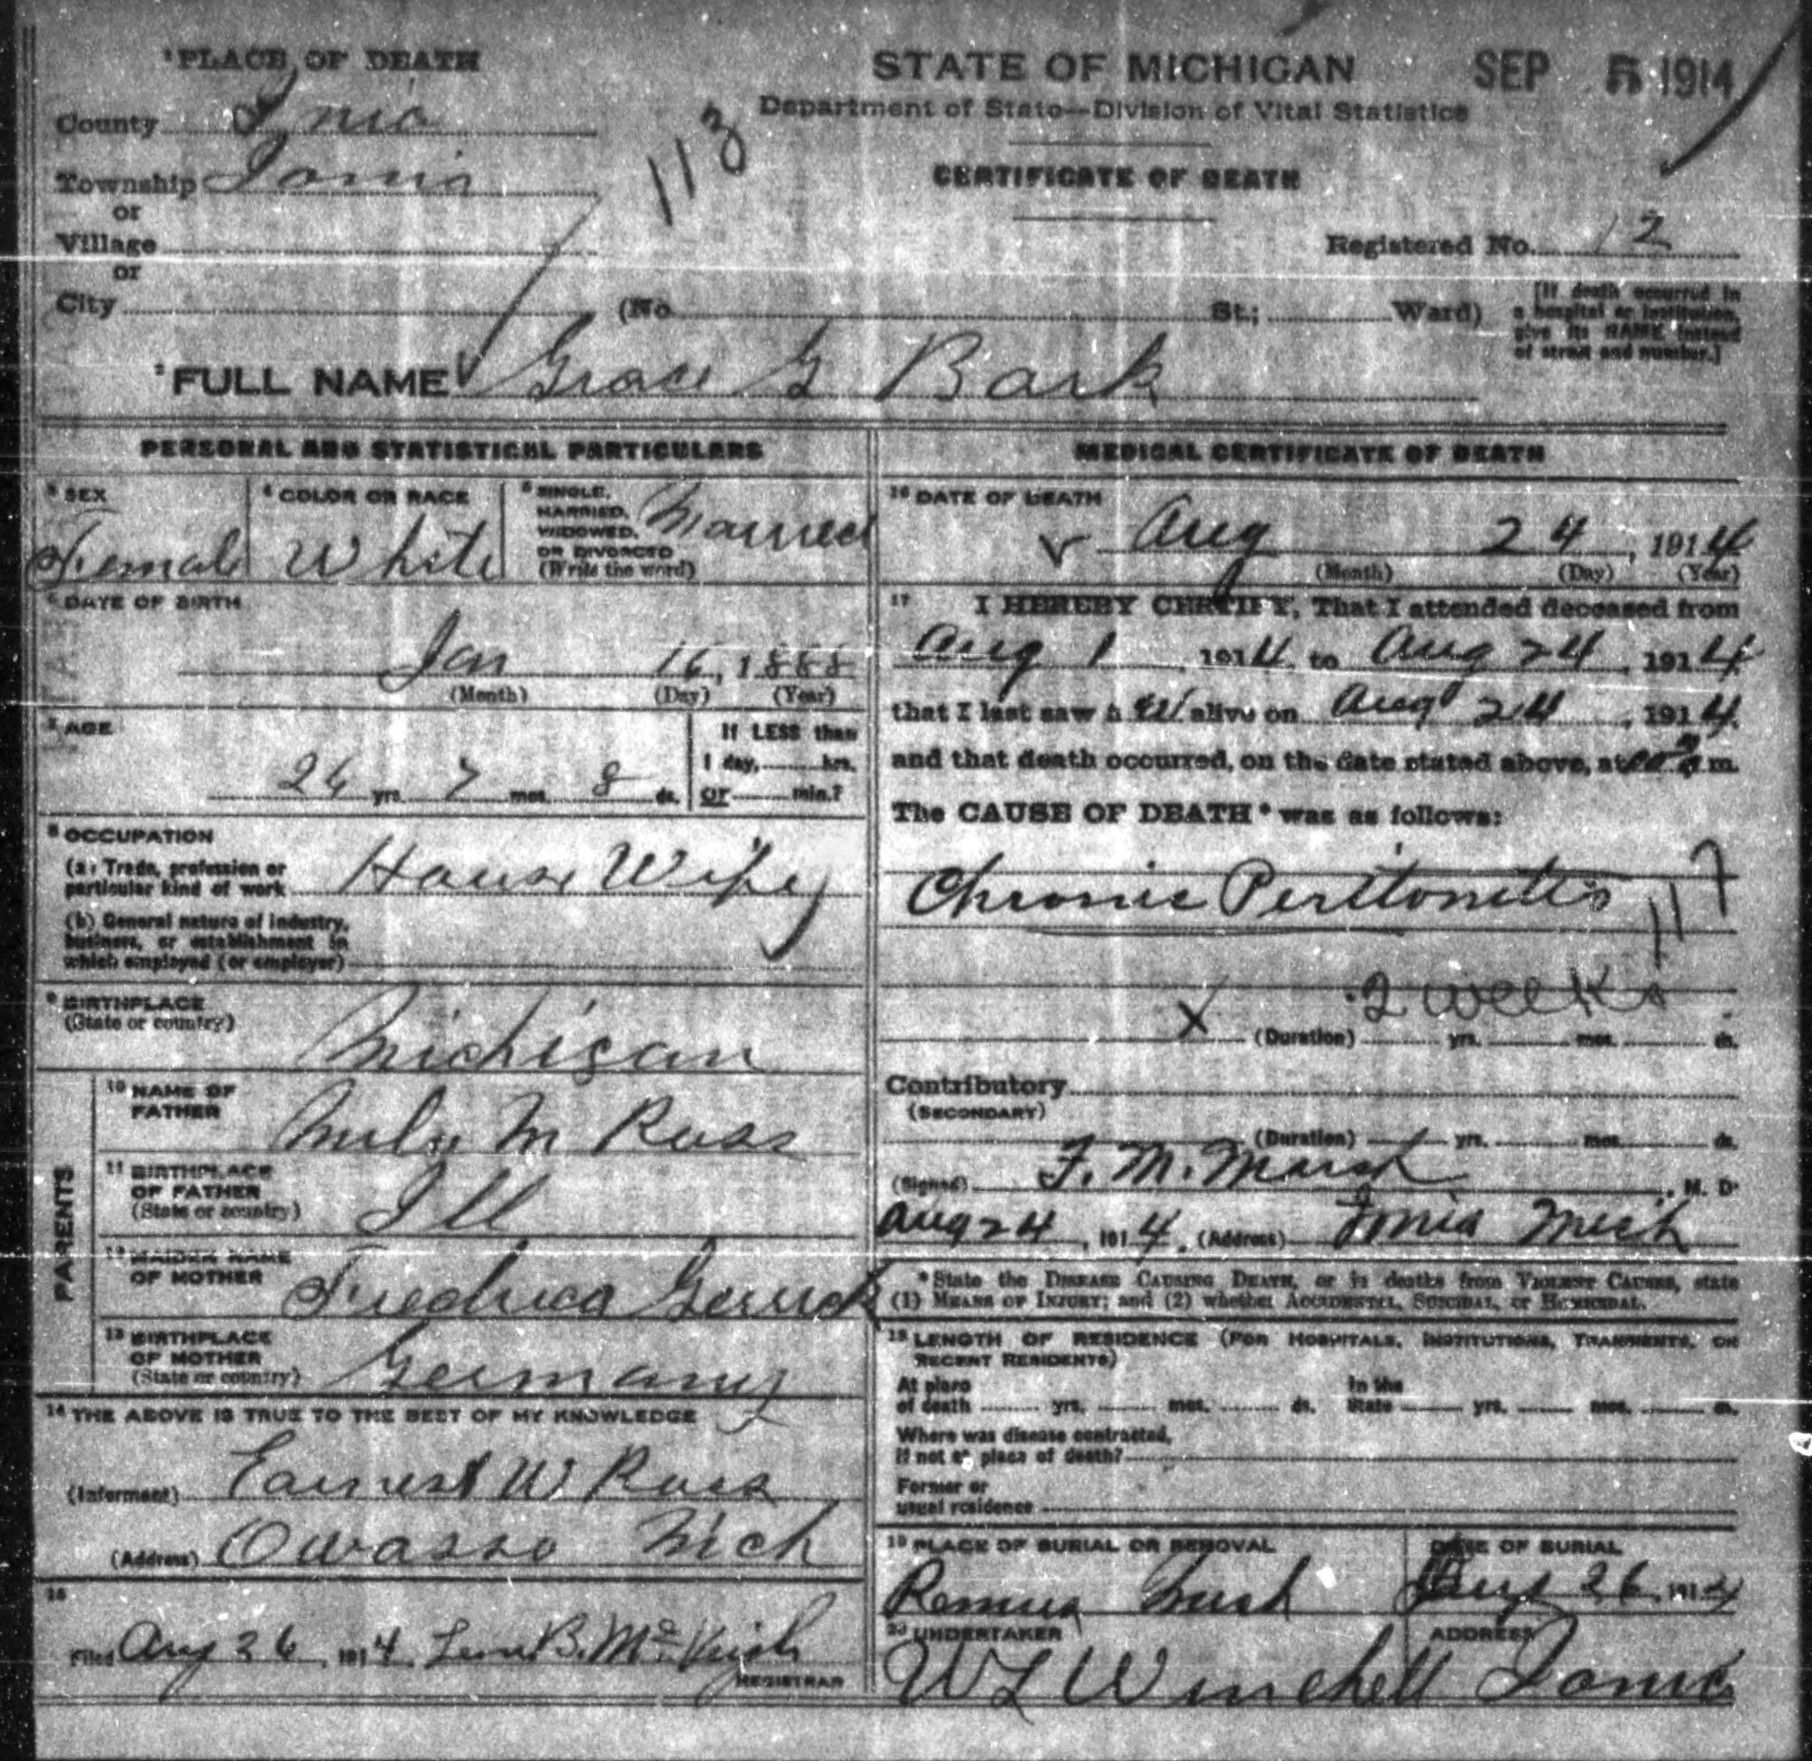 1 PLACE OF DEATH
STATE OF MICHIGAN
SEP 5 1914
County Ionia
Department of State—Division of Vital Statistics
113
Township Ionia
CERTIFICATE OF DEATH
or
Village
Registered No. 12
or
City (No. St.; Ward)
[If death occurred in
a hospital or institution,
give its NAME instead
of street and number.]
2 FULL NAME Grace G Bark
PERSONAL AND STATISTICAL PARTICULARS
3 SEX
Female
4 COLOR OR RACE
White
5 SINGLE,
MARRIED,
WIDOWED,
OR DIVORCED
(Write the word)
Married
6 DATE OF BIRTH
Jan 16, 1888
(Month) (Day) (Year)
7 AGE
26 yrs. 7 mos. 8 ds.
If LESS than
1 day, hrs.
or min.?
8 OCCUPATION
(a) Trade, profession or
particular kind of work House Wife
(b) General nature of industry,
business, or establishment in
which employed (or employer)
9 BIRTHPLACE
(State or country)
Michigan
PARENTS
10 NAME OF
FATHER
M Ross
11 BIRTHPLACE
OF FATHER
(State or country)
Ill
12 MAIDEN NAME
OF MOTHER
Fredrica
13 BIRTHPLACE
OF MOTHER
(State or country)
Germany
14 THE ABOVE IS TRUE TO THE BEST OF MY KNOWLEDGE
(Informant) Earnest W Ross
(Address) Owasso Mich
15
Filed Aug 26, 1914. B. McVeigh
REGISTRAR
MEDICAL CERTIFICATE OF DEATH
16 DATE OF DEATH
Aug 24, 1914
(Month) (Day) (Year)
17 I HEREBY CERTIFY, That I attended deceased from
Aug 1, 1914, to Aug 24, 1914
that I last saw her alive on Aug 24, 1914.
and that death occurred, on the date stated above, at m.
The CAUSE OF DEATH* was as follows:
Chronic Peritonitis 117
2 weeks
X (Duration) yrs. mos. ds.
Contributory
(SECONDARY)
(Duration) yrs. mos. ds.
(Signed) F. M. Marsh, M. D.
Aug 24, 1914. (Address) Ionia Mich
*State the DISEASE CAUSING DEATH, or in deaths from VIOLENT CAUSES, state
(1) MEANS OF INJURY; and (2) whether ACCIDENTAL, SUICIDAL, or HOMICIDAL.
18 LENGTH OF RESIDENCE (FOR HOSPITALS, INSTITUTIONS, TRANSIENTS, OR
RECENT RESIDENTS)
At place In the
of death yrs. mos. ds. State yrs. mos. ds.
Where was disease contracted,
if not at place of death?
Former or
usual residence
19 PLACE OF BURIAL OR REMOVAL
Remus Mich
DATE OF BURIAL
Aug 26, 1914
20 UNDERTAKER
W L Winchell
ADDRESS
Ionia